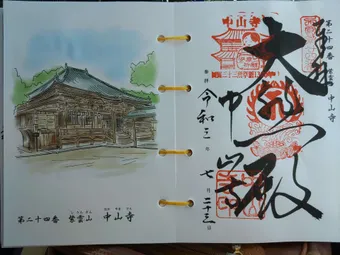 第二十四番 紫雲山 中山寺
第二十四番 紫雲山 中山寺
奉拝
大悲殿
中山寺
令和三年七月二十三日
中山寺